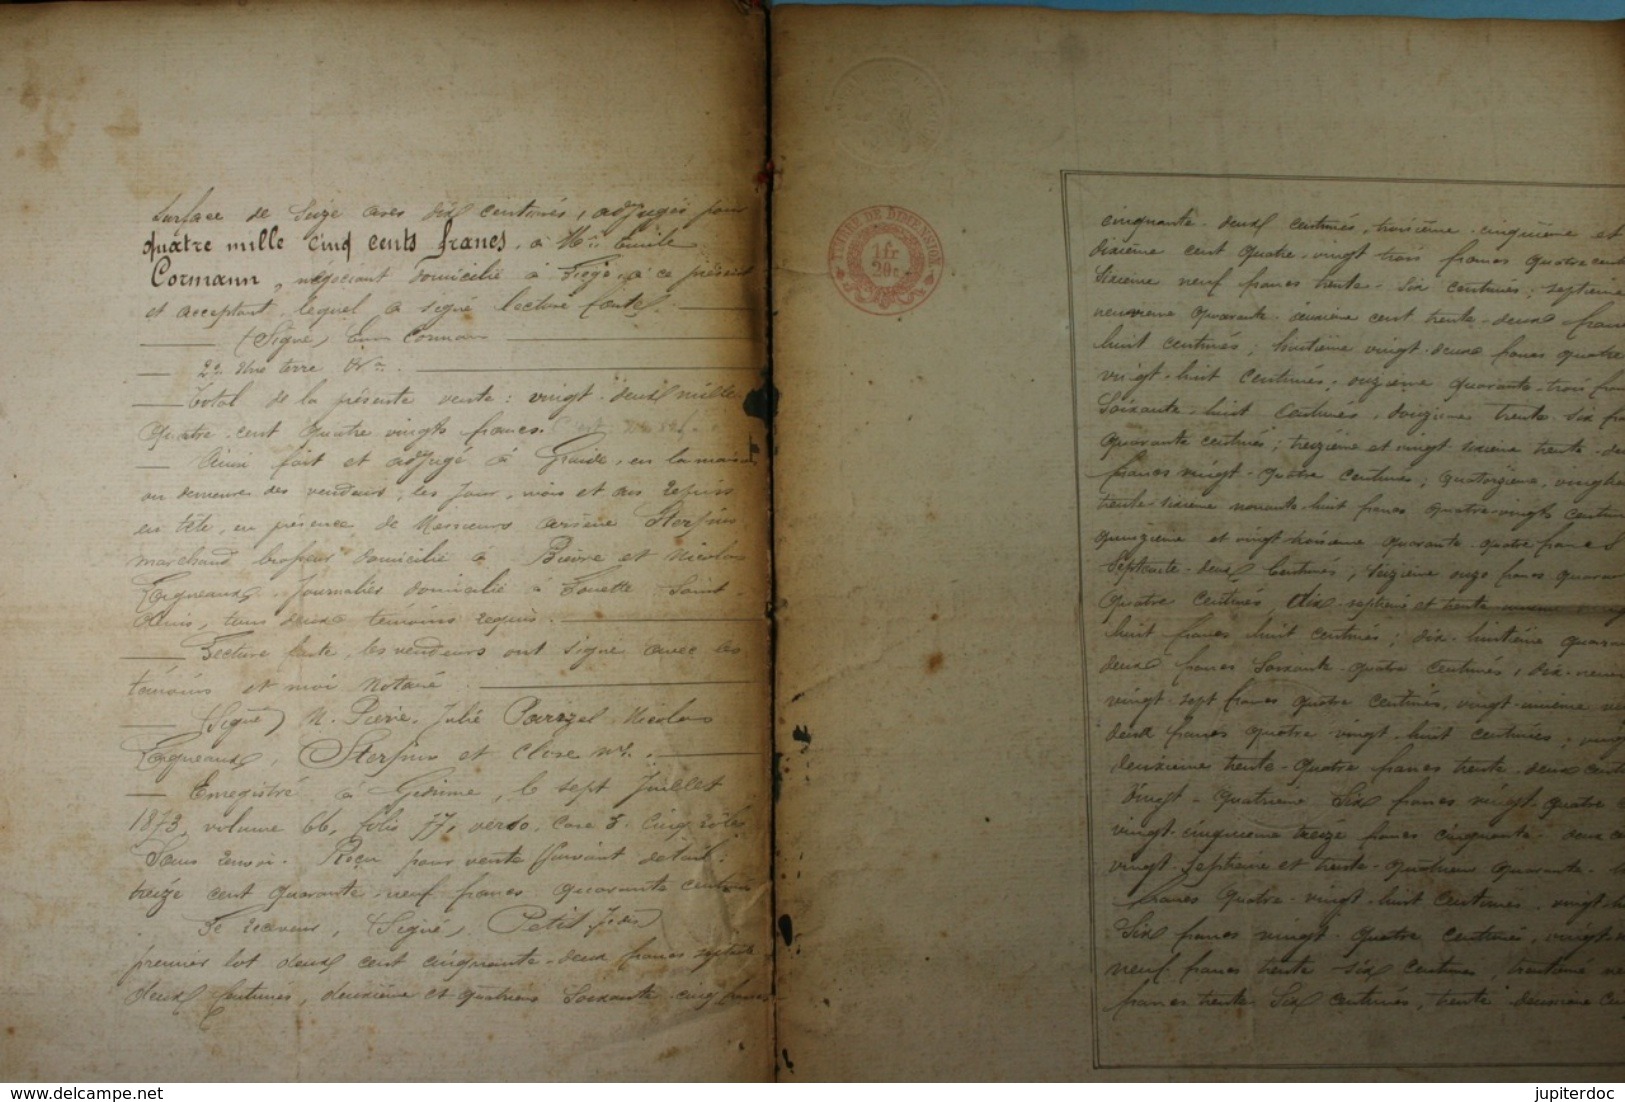 surface de seize ares dix centiares, adjugés pour
quatre mille cinq cents francs, à Mr Emile
Cormann, négociant domicilié à Liège, à ce présent
et acceptant, lequel a signé lecture faite.
(Signé) Em Cormann
2º Une terre &ra.
Total de la présente vente : vingt-deux mille
quatre cent quatre vingts francs.
Ainsi fait et adjugé à Graide, en la maison
ou demeure des vendeurs, les jour, mois et an repris
en tête, en présence de Messieurs Arsène
marchand domicilié à Bièvre et Nicolas
journalier domicilié à Louette Saint
Denis, tous deux témoins requis.
Lecture faite, les vendeurs ont signé avec les
témoins et moi Notaire
(Signé) N. Pierre, Julie Parizel Nicolas
et Close nre.
Enregistré à Gedinne, le sept Juillet
1873, volume 66, folio 77, verso, case 3. Cinq rôles
sans renvoi. Reçu pour vente suivant détail
treize cent quarante-neuf francs quarante centimes
Le receveur, (Signé) Petit
premier lot deux cent cinquante-deux francs septante
deux centimes, deuxième et quatrième soixante-cinq francs
TIMBRE DE DIMENSION
1 fr
20 c.
cinquante-deux centimes, troisième, cinquième et
dixième cent quatre-vingt trois francs quatre cent
sixième neuf francs trente-six centimes ; septième
neuvième quarante-deuxième cent trente-deux francs
huit centimes ; huitième vingt-deux francs quatre
vingt-huit centimes, onzième quarante-trois francs
soixante-huit centimes, douzième trente-six fr
quarante centimes ; treizième et vingt-sixième trente-de
francs vingt-quatre centimes ; quatorzième, vingt
trente-sixième nonante-huit francs quatre-vingts centimes
quinzième et vingt-troisième quarante-quatre francs
septante-deux centimes ; seizième onze francs quarante
quatre centimes, dix-septième et trente
huit francs huit centimes ; dix-huitième quarante
deux francs soixante-quatre centimes, dix-neuv
vingt-sept francs quatre centimes, vingt-unième
deux francs quatre-vingt-huit centimes ; vingt
deuxième trente-quatre francs trente-deux cent
vingt-quatrième six francs vingt-quatre
vingt-cinquième treize francs cinquante-deux ce
vingt-septième et trente-quatrième quarante-
francs quatre-vingt-huit centimes, vingt-h
six francs vingt-quatre centimes, vingt-n
neuf francs trente-six centimes, trentième
francs trente-six centimes, trente-deuxième
jupiterdoc